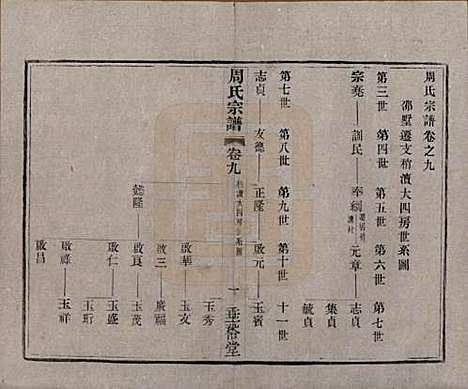 周氏宗譜卷之九
邵墅遷支稍瀆大四房世系圖
第三世 第四世 第五世 第六世 第七世
宗堯 訓民 奉 元章 志貞
集貞
毓貞
第七世 第八世 第九世 第十世 十一世
志貞 友德 正隆 啟元 玉賓
周氏宗譜 卷九 一 垂裕堂
玉秀
啟華 玉文
啟三 廣福
懿隆 啟良 玉茂
啟仁 玉盛
玉珩
啟祿 玉祥
啟昌